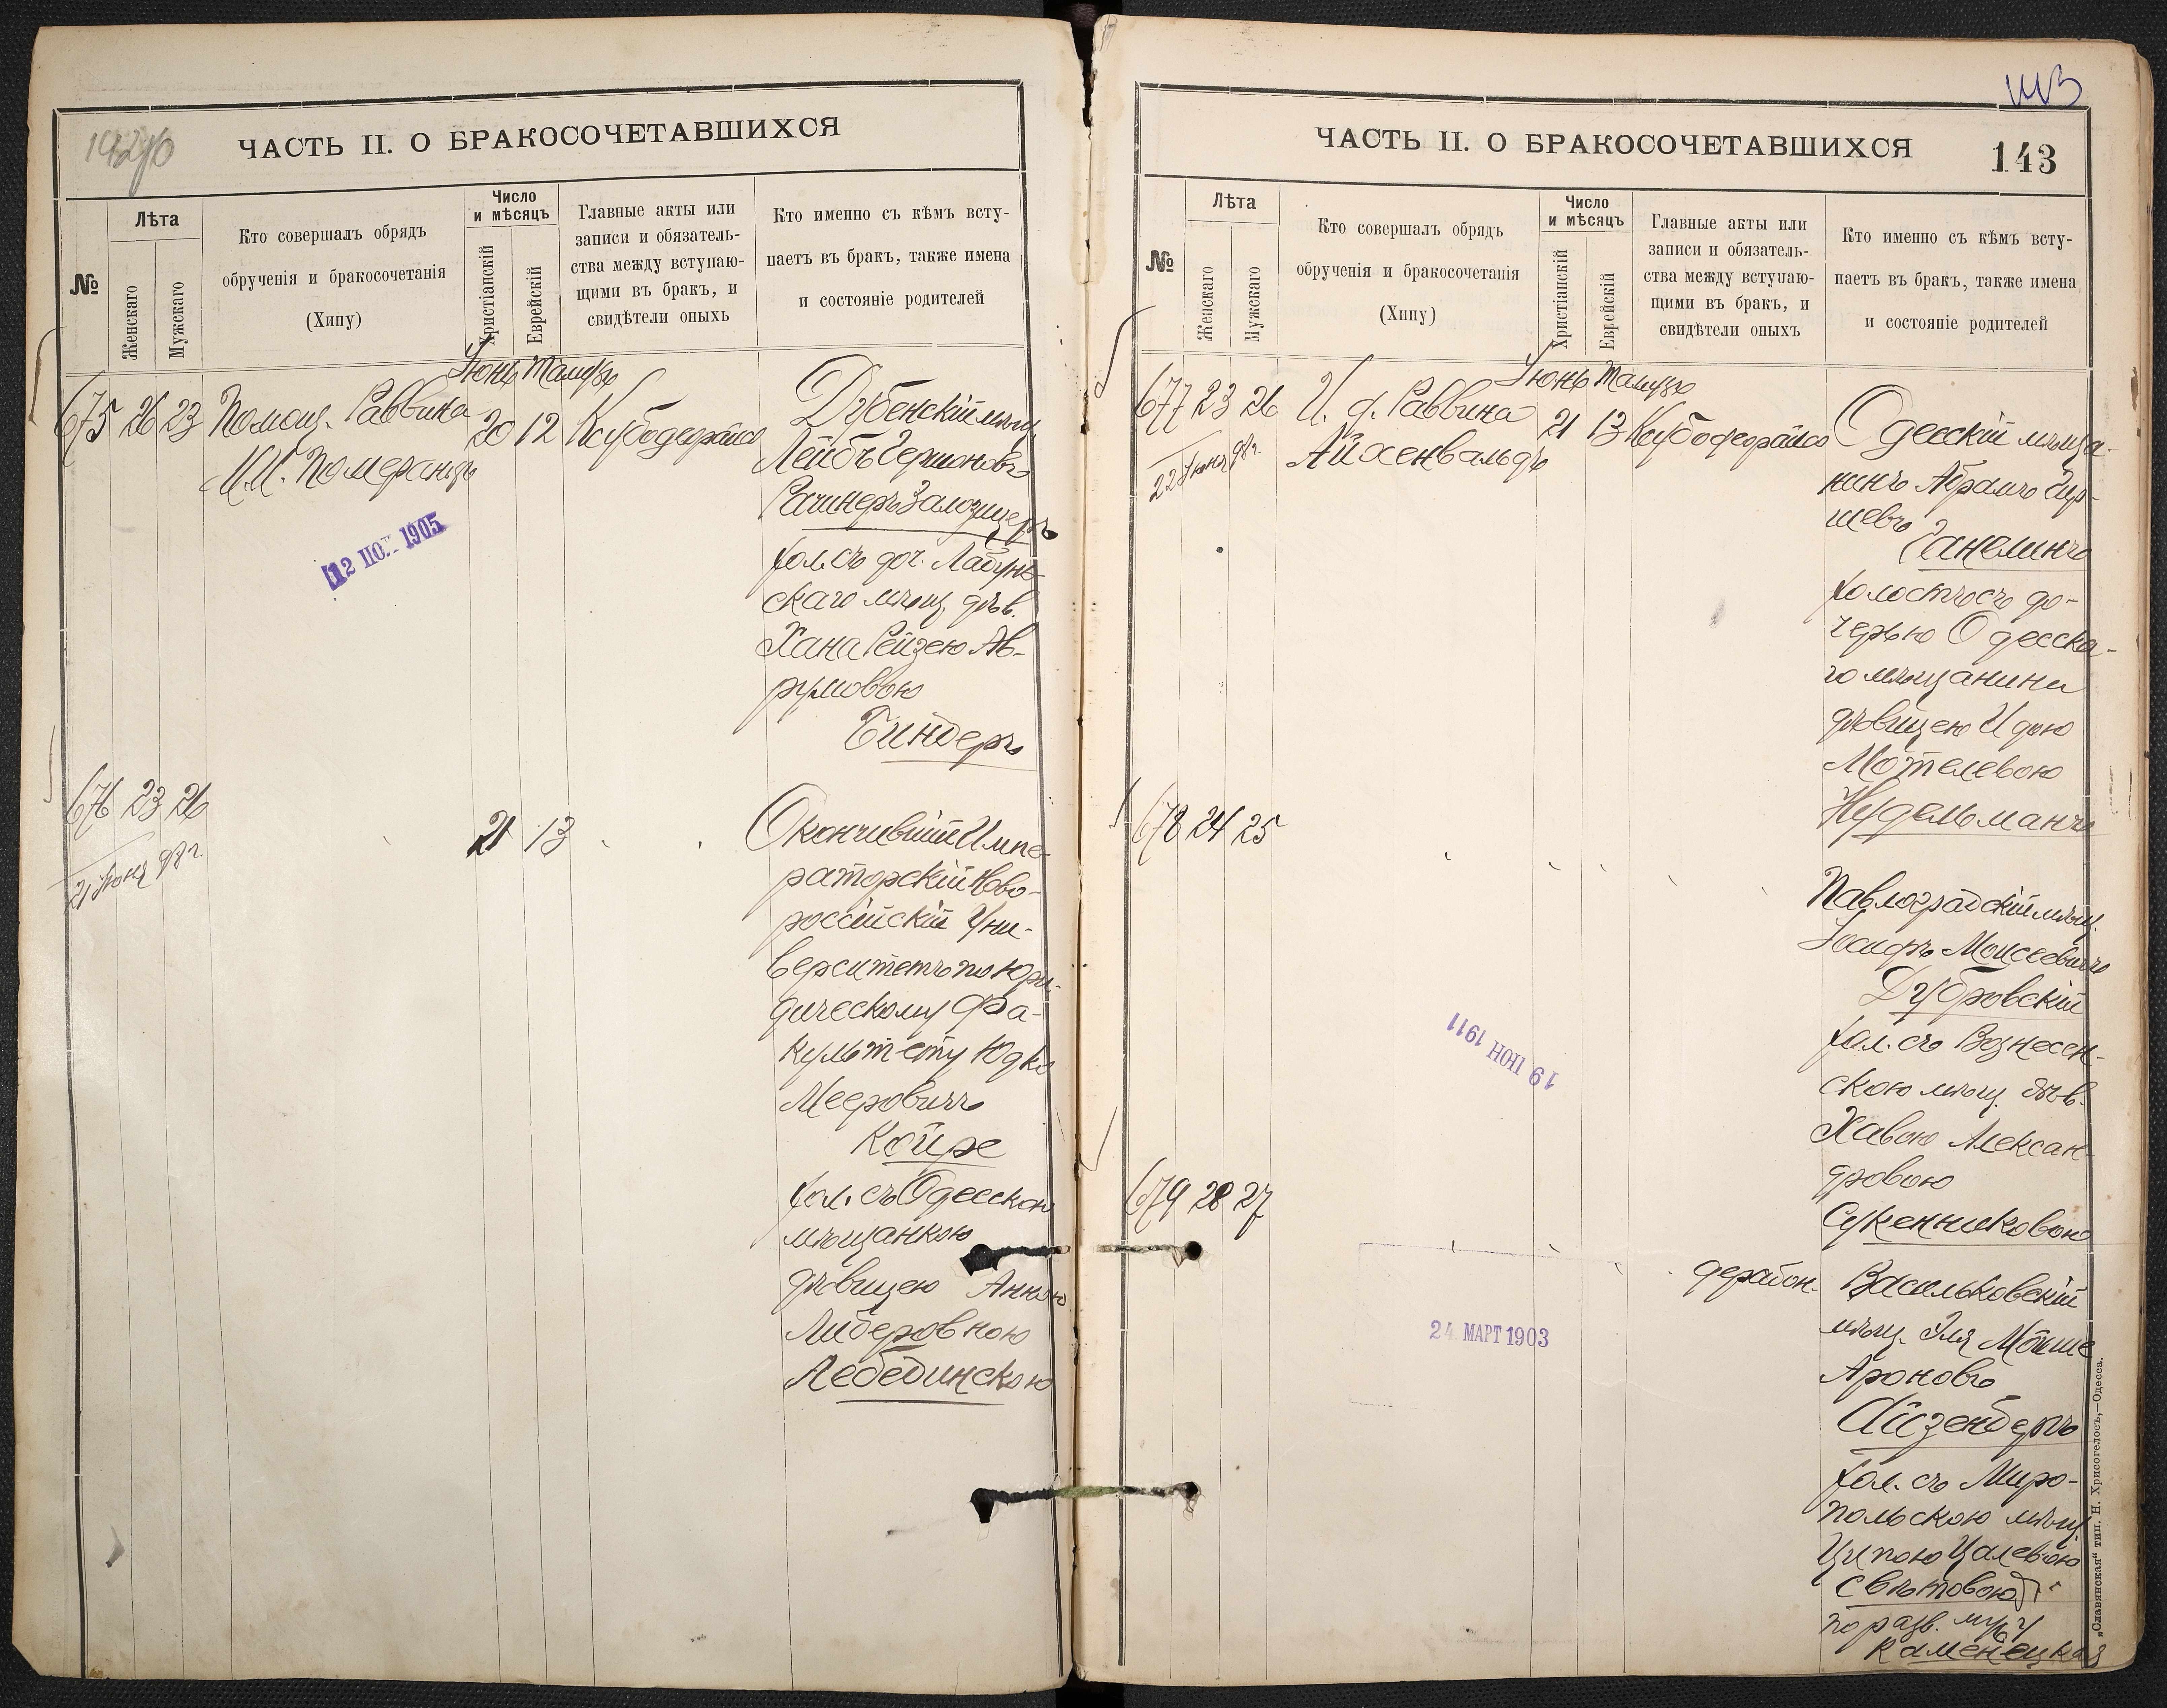 ЧАСТЬ II. О БРАКОСОЧЕТАВШИХСЯ
№
Лѣта
Женскаго
Мужскаго
Кто совершалъ обрядъ
обрученія и бракосочетанія
(Хипу)
Число
и мѣсяцъ
Христіанскій
Еврейскій
Главные акты или
записи и обязатель-
ства между вступаю-
щими въ бракъ, и
свидѣтели оныхъ
Кто именно съ кѣмъ всту-
паетъ въ бракъ, также имена
и состояніе родителей
Іюнь Тамузъ
675 26 23 Помощ. Раввина 20 12 Ксубодерайсо
М. Померанцъ
12 1905
Дубенскій мѣщ.
Лейбъ Гершоновъ
хол. съ доч. Лабун-
скаго мѣщ. дѣв.
Хана Рейзею Ав-
румовою
Биндеръ
676 23 26 21 13
21 Іюня 98 г.
Окончившій Импе-
раторскій Ново-
россійскій Уни-
верситетъ по Юри-
дическому Фа-
культету Юдко
Мееровичъ
Койре
хол. съ Одесскою
мѣщанкою
дѣвицею Анною
Либеровною
Лебединскою
ЧАСТЬ II. О БРАКОСОЧЕТАВШИХСЯ
143
№
Лѣта
Женскаго
Мужскаго
Кто совершалъ обрядъ
обрученія и бракосочетанія
(Хипу)
Число
и мѣсяцъ
Христіанскій
Еврейскій
Главные акты или
записи и обязатель-
ства между вступаю-
щими въ бракъ, и
свидѣтели оныхъ
Кто именно съ кѣмъ всту-
паетъ въ бракъ, также имена
и состояніе родителей
Іюнь Тамузъ
677 23 26 И. д. Раввина 21 13 Ксубодерайсо
22 Іюня 98 г.
Айхенвальдъ
Одесскій мѣща-
нинъ Абрамъ Гер-
шевъ
Ганелинъ
холостъ съ до-
черью Одесска-
го мѣщанина
дѣвицею Идою
Мотелевою
Нудельманъ
678 24 25
Павлоградскій мѣщ.
Іосифъ Моисеевичъ
Дубровскій
хол. съ Вознесен-
скою мѣщ. дѣв.
Хавою Алексан-
дровою
Сукенниковою
19 ІЮН 1911
679 28 27
24 МАРТ 1903
дерабон.
Васильковскій
мѣщ. Эля Мойше
Ароновъ
Айзенбергъ
хол. съ Миро-
польскою мѣщ.
Ципою Цалевою
Свѣтовою
по разв. мужу
Каменецкая
„Славянская“ тип. Н. Хрисогелосъ,—Одесса.